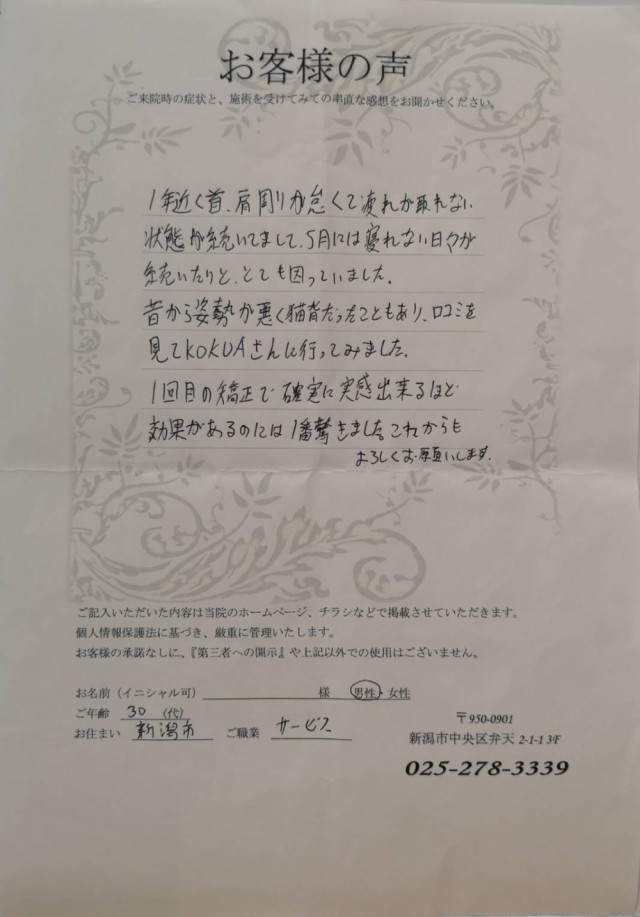 お客様の声
ご来院時の症状と、施術を受けてみての率直な感想をお聞かせください。
1年近く首、肩周りが怠くて疲れが取れない
状態が続いてまして、5月には寝れない日々が
続いたりと、とても困っていました。
昔から姿勢が悪く猫背だったこともあり、口コミを
見てKOKUAさんに行ってみました。
1回目の矯正で確実に実感出来るほど
効果があるのには1番驚きました。これからも
よろしくお願いします。
ご記入いただいた内容は当院のホームページ、チラシなどで掲載させていただきます。
個人情報保護法に基づき、厳重に管理いたします。
お客様の承諾なしに、『第三者への開示』や上記以外での使用はございません。
お名前（イニシャル可） 様 男性・女性
ご年齢 30（代）
お住まい 新潟市 ご職業 サービス
〒950-0901
新潟市中央区弁天 2-1-1 3F
025-278-3339